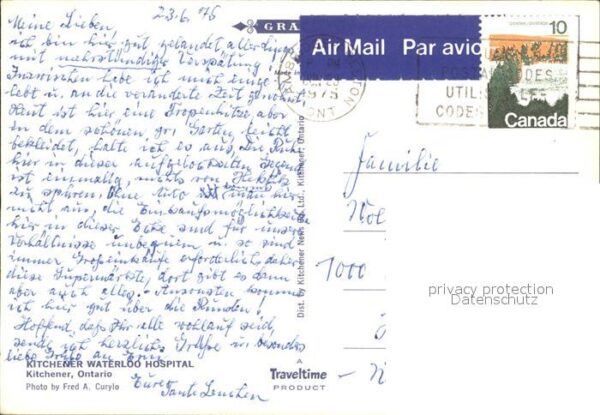 23.6.76
Meine Lieben,
ich bin hier gut gelandet, allerdings
mit mehrstündiger Verspätung.
Inzwischen habe ich mich einge-
lebt u. an die veränderte Zeit gewöhnt.
Heut ist hier eine Tropenhitze, aber
in dem schönen gr. Garten leicht
bekleidet, halte ich es aus. Die Ruhe
hier in dieser aufgelockerten Gegend
ist einmalig, nichts von Hektik
zu spüren. Ohne Auto man hier
nicht aus, die Einkaufsmöglichkeiten
hier in dieser Ecke sind für unsere
Verhältnisse unbequem u. so sind
immer Großeinkäufe erforderlich, daher
diese Supermärkte, dort gibt es dann
aber auch alles. Ansonsten komme
ich hier gut über die Runden!
Hoffend, daß Ihr alle wohlauf seid,
sende ich herzliche Grüße u. besonders
liebe Grüße an
Eure
Tante Lenchen
KITCHENER WATERLOO HOSPITAL
Kitchener, Ontario
Photo by Fred A. Curylo
GRA
Dist. by Kitchener News Co. Ltd., Kitchener, Ontario
Traveltime
PRODUCT
Air Mail Par avion
10
Canada
POSTAL CODES
UTIL
CODES
ONT
Familie
1000
privacy protection
Datenschutz